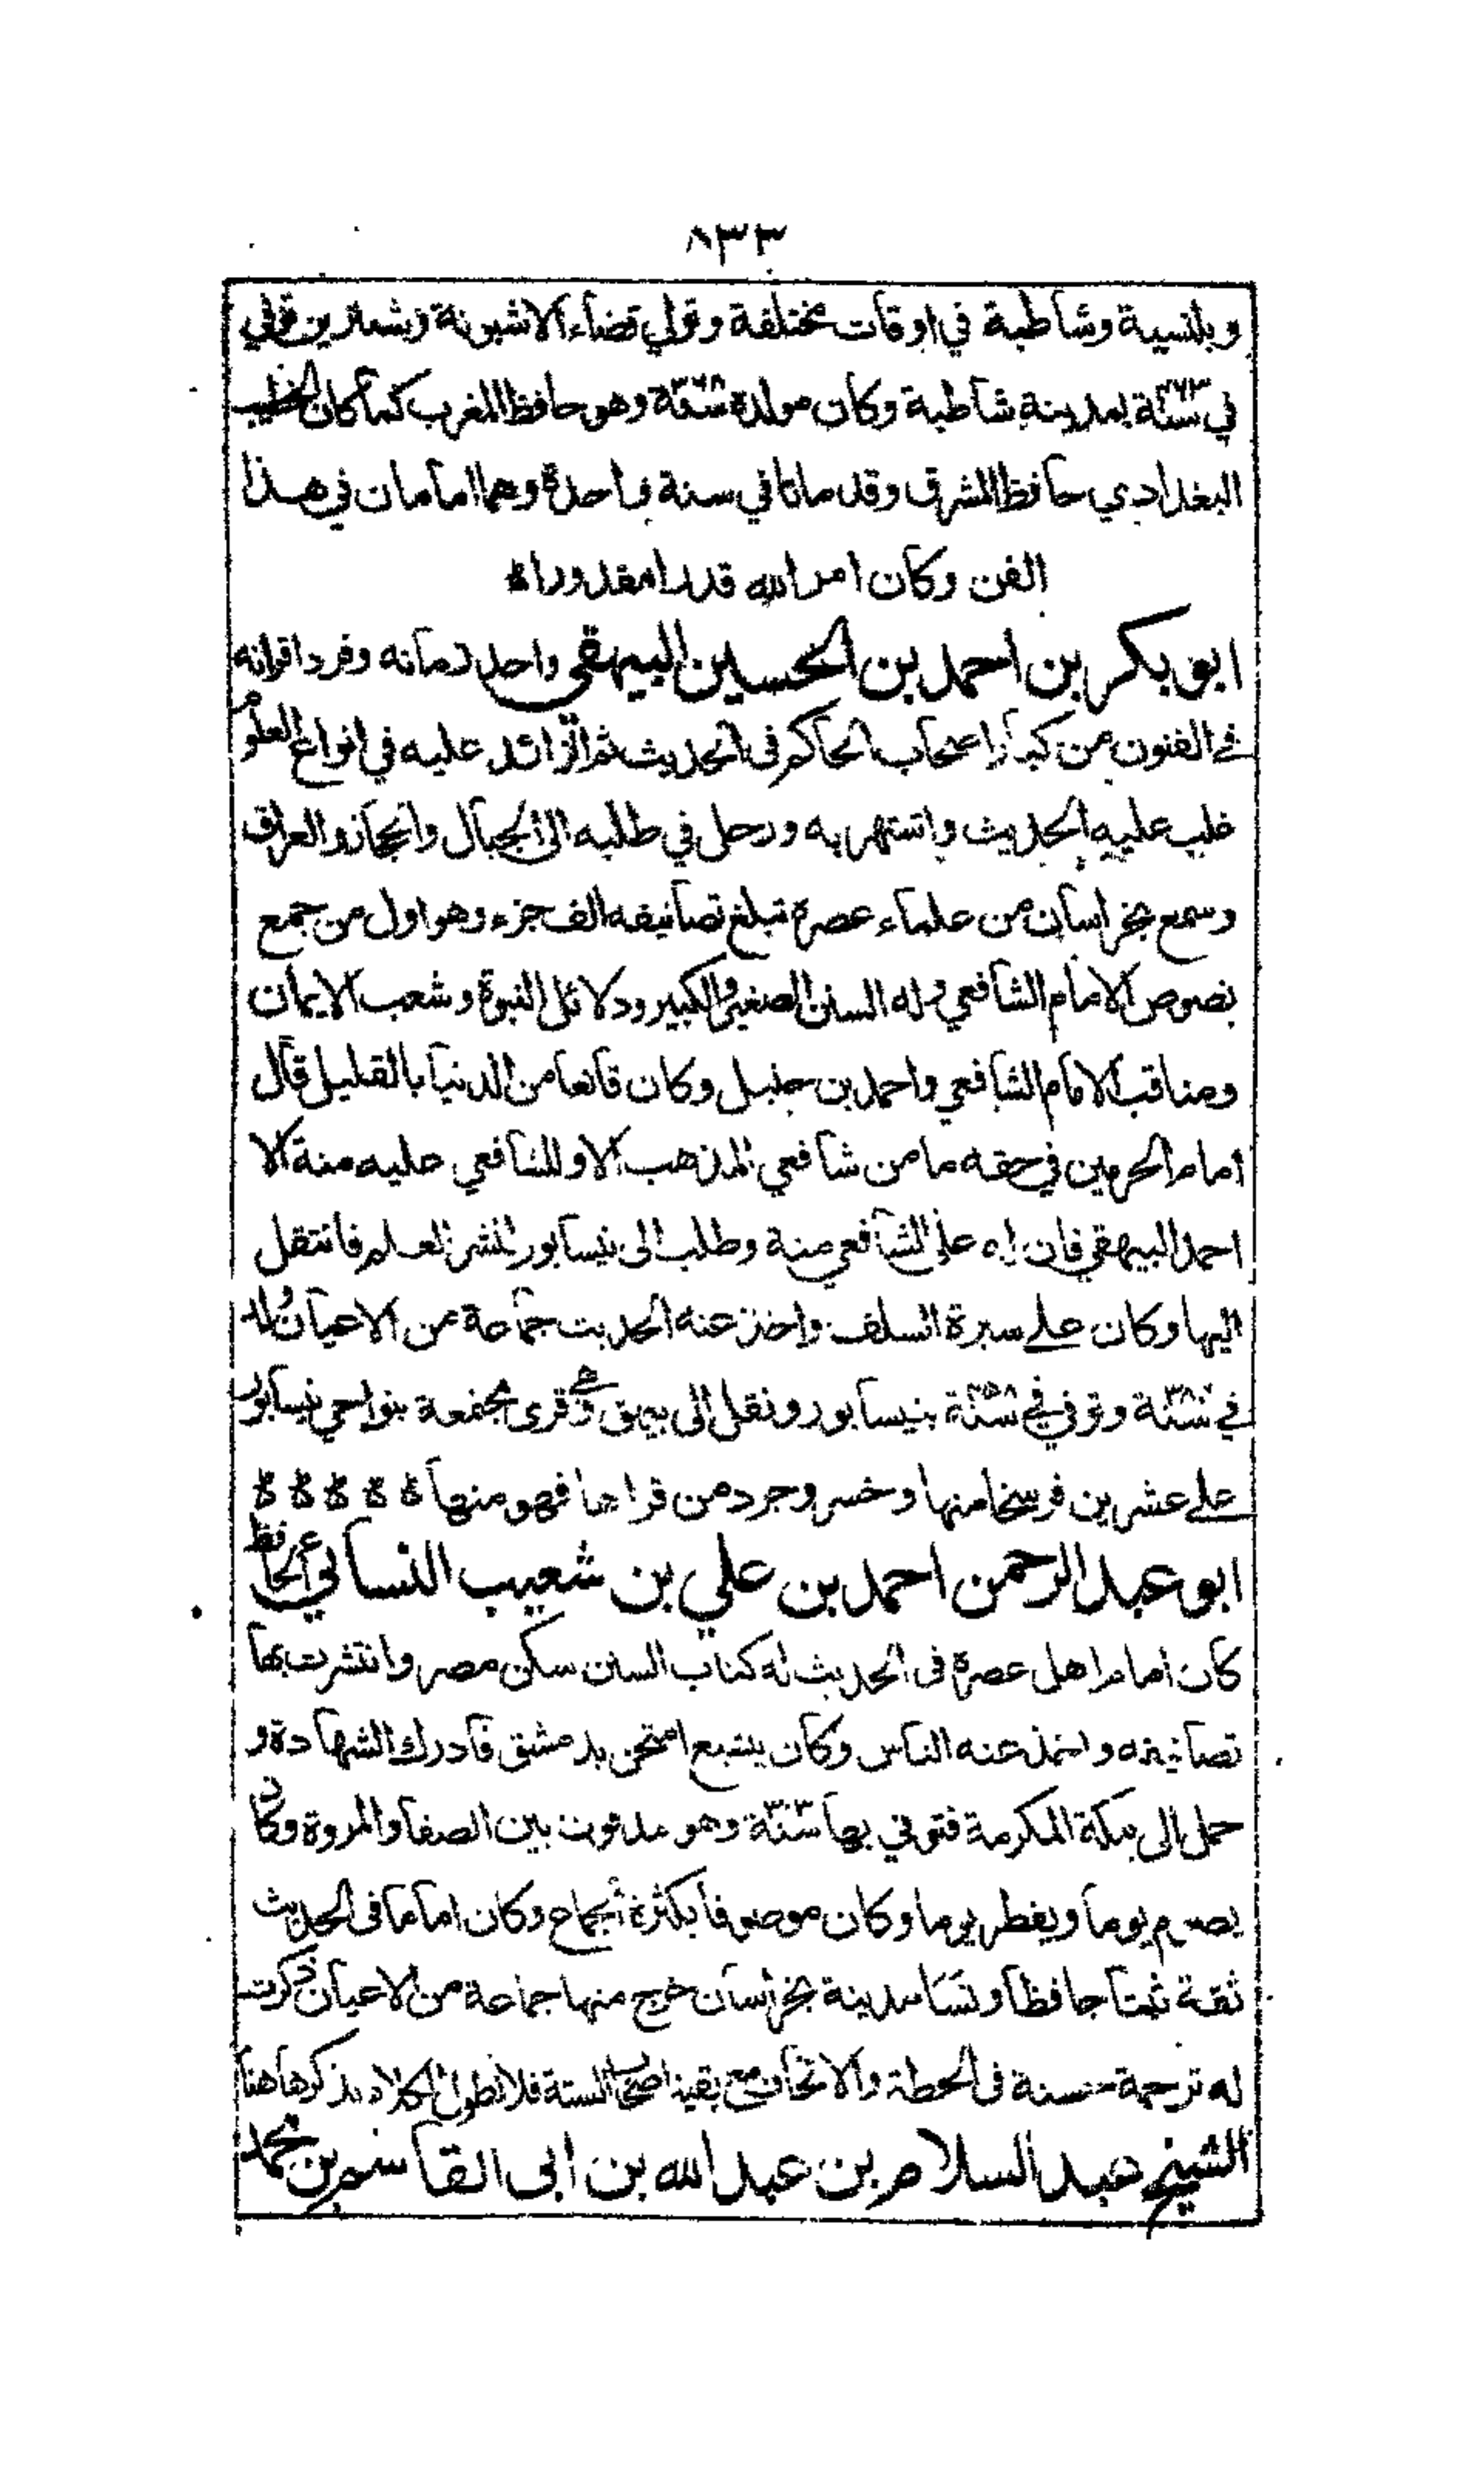 ٨٣٣
وبلنسية وشاطبة في اوقات مختلفة وتولي قضاء الاشبونة وشنترين توفي
في سنة ٤٦٣ بمدينة شاطبة وكان مولده سنة ٣٦٨ وهو حافظ المغرب كما كان الخطيب
البغدادي حافظ المشرق وقد ماتا في سنة واحدة وهما امامان في هذا
الفن وكان امر الله قدرا مقدورا ه
ابو بكر بن احمد بن الحسين البيهقي واحد زمانه وفرد اقرانه
في الفنون من كبار اصحاب الحاكم فى الحديث ثم الزائد عليه في انواع العلوم
غلب عليه الحديث واشتهر به ورحل في طلبه الى الجبال والحجاز والعراق
وسمع بخراسان من علماء عصره تبلغ تصانيفه الف جزء وهو اول من جمع
نصوص الامام الشافعي وله السنن الصغير والكبير ودلائل النبوة وشعب الايمان
ومناقب الامام الشافعي واحمد بن حنبل وكان قانعا من الدنيا بالقليل قال
امام الحرمين في حقه ما من شافعي المذهب الا وللشافعي عليه منة الا
احمد البيهقي فان له على الشافعي منة وطلب الى نيسابور لنشر العلم فانتقل
اليها وكان على سيرة السلف واخذ عنه الحديث جماعة من الاعيان ولد
في سنة وتوفي في سنة بنيسابور ونقل الى بيهق وهي قرى مجتمعة بنواحي نيسابور
على عشرين فرسخا منها وخسروجرد من قراها فهو منها ه ه ه ه ه
ابو عبد الرحمن احمد بن علي بن شعيب النسائي الحافظ
كان امام اهل عصره فى الحديث له كتاب السنن سكن مصر وانتشرت بها
تصانيفه واخذ عنه الناس وكان يتشيع امتحن بدمشق فادرك الشهادة و
حمل الى مكة المكرمة فتوفي بها سنة وهو مدفون بين الصفا والمروة وكان
يصوم يوما ويفطر يوما وكان موصوفا بكثرة الجماع وكان اماما فى الحديث
ثقة ثبتا حافظا ونسا مدينة بخراسان خرج منها جماعة من الاعيان ذكرت
له ترجمة حسنة فى الحطة والاتحاف مع بقية اصحاب الستة فلا نطول الكلام بذكرها هنا
الشيخ عبد السلام بن عبد الله بن ابى القاسم بن محمد